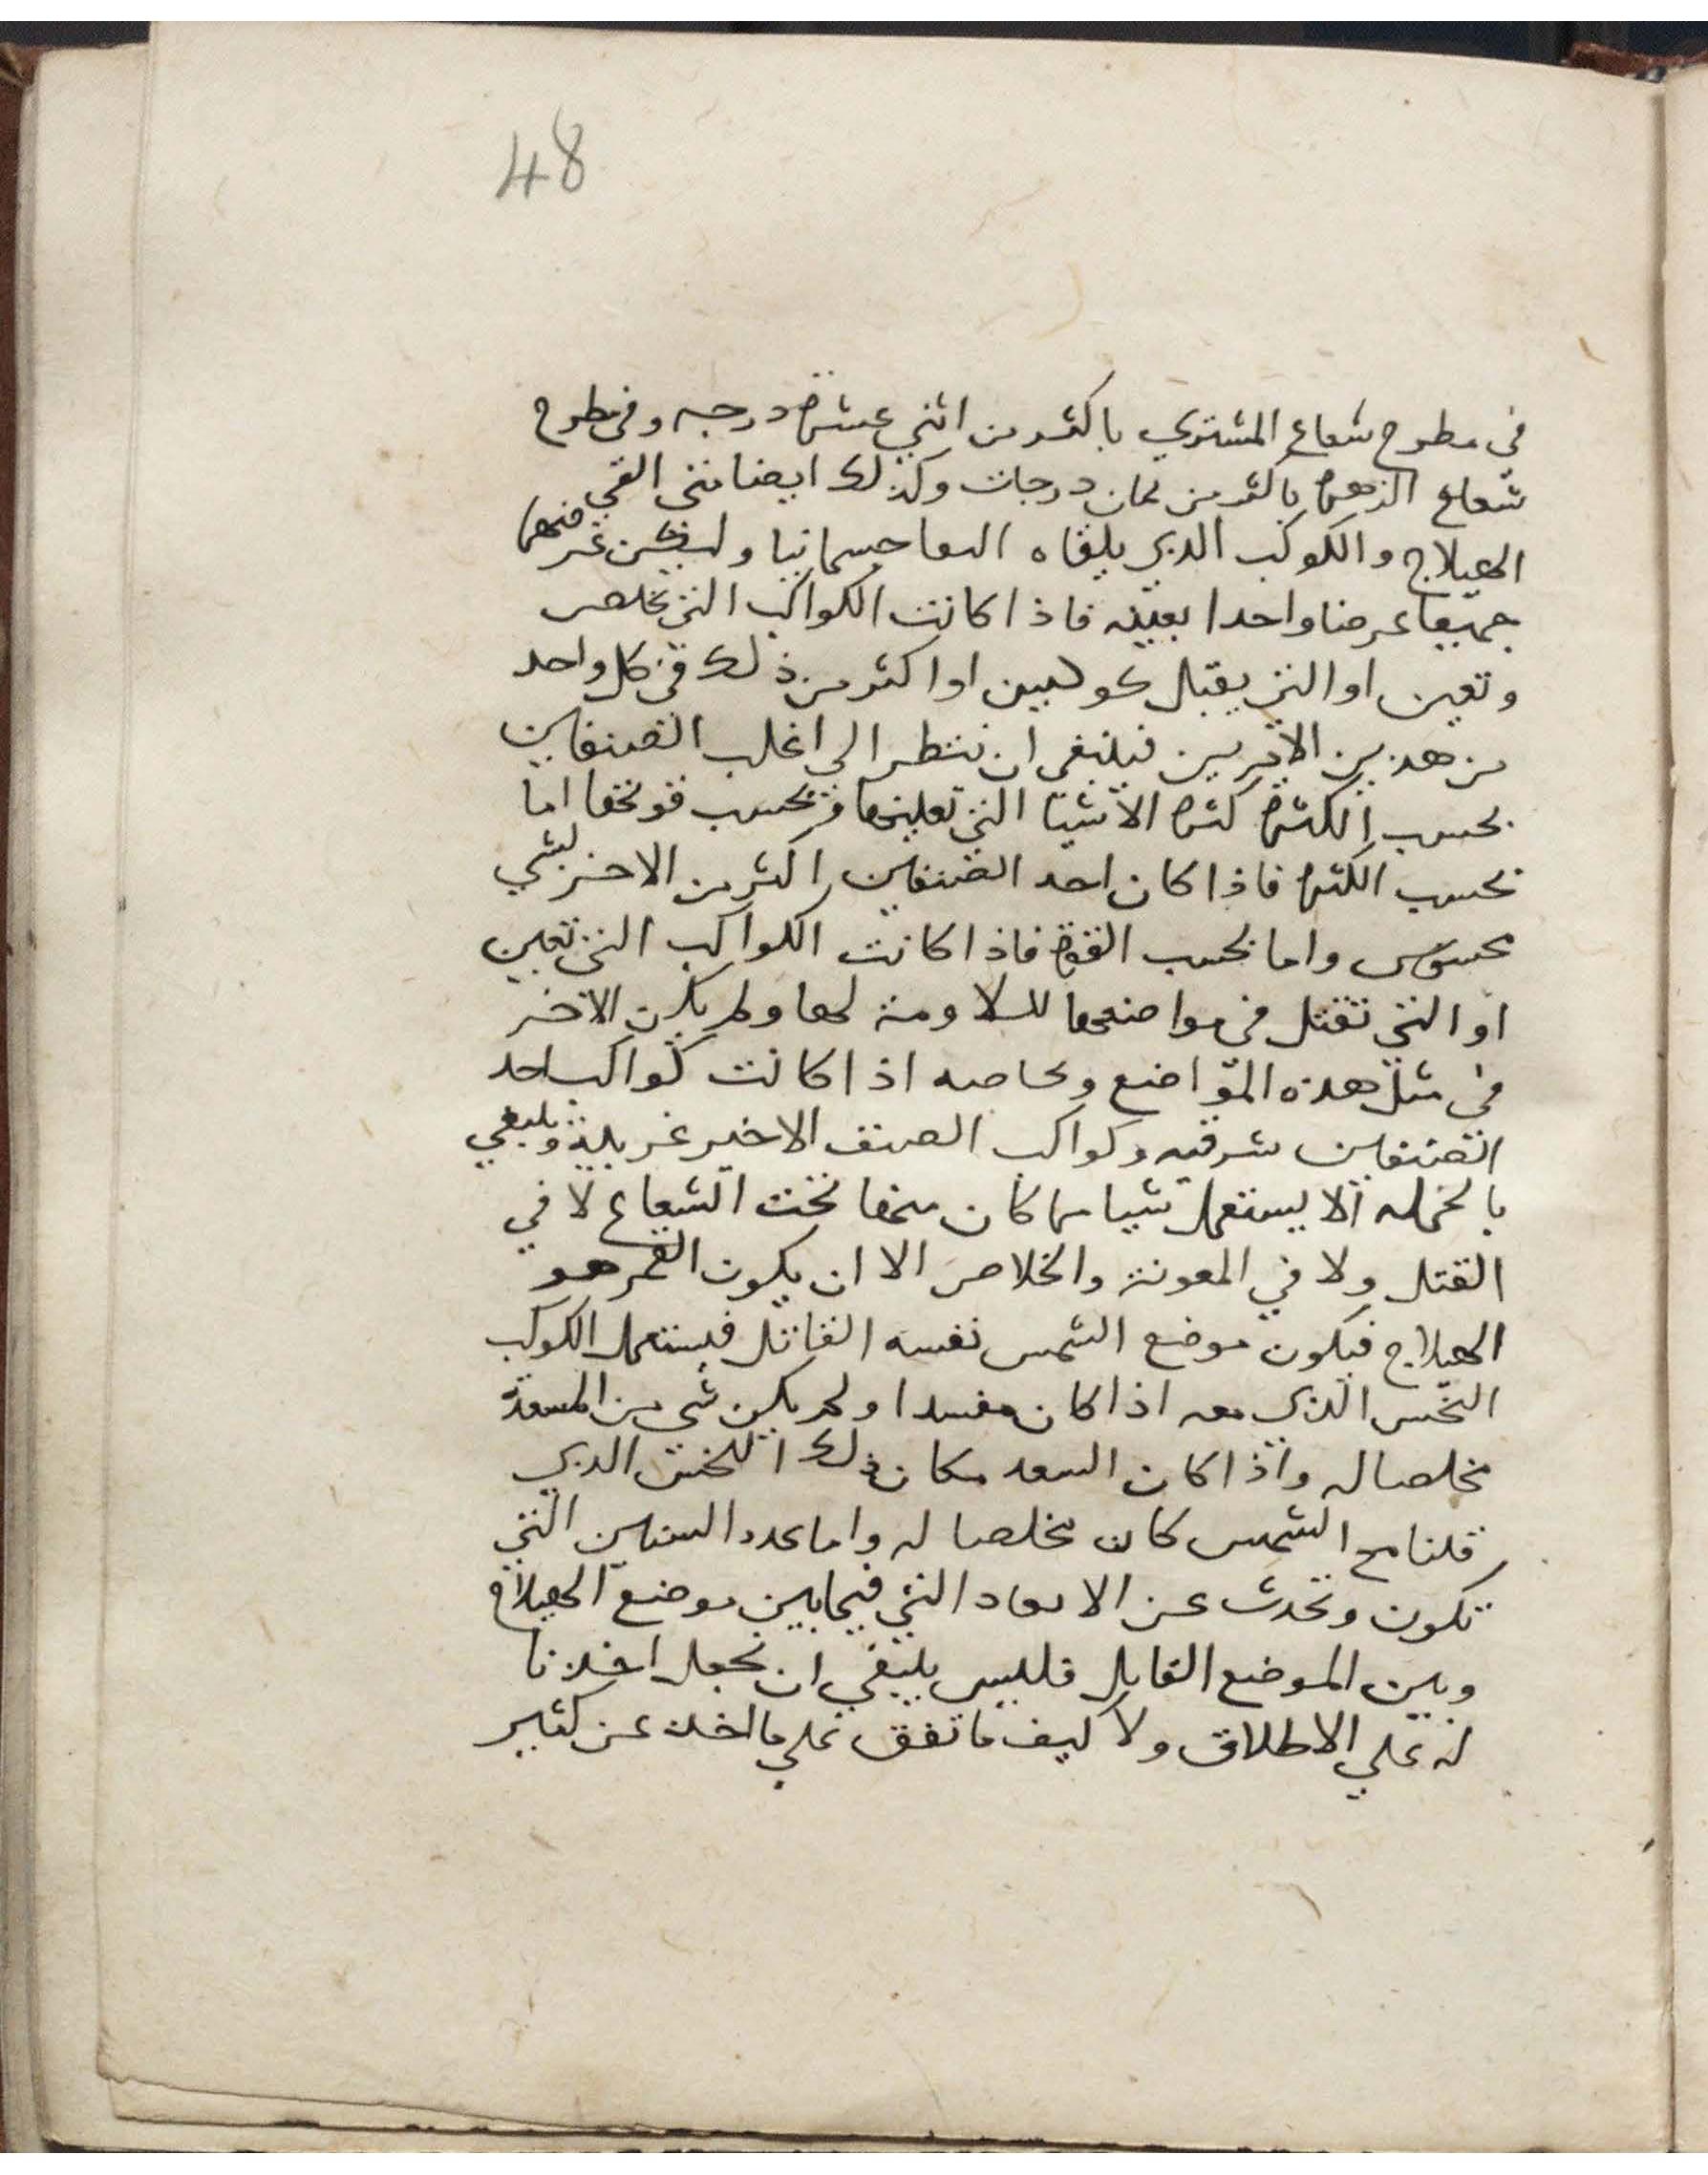 48
في مطرح شعاع المشتري باكثر من اثني عشرة درجه وفي مطرح
شعاع الزهرة باكثر من ثمان درجات وكذلك ايضا متى القي
الهيلاج والكوكب الذي يلقاه القا جسمانيا وليكن عرضهما
جميعا عرضا واحدا بعينه فاذا كانت الكواكب التي تخلص
وتعين او التي يقتل كوكبين او اكثر من ذلك في كل واحد
من هذين الامرين فينبغي ان ننظر الي اغلب الصنفين
بحسب الكثرة كثرة الاشيا التي تعليها وبحسب قوتها اما
بحسب الكثرة فاذا كان احد الصنفين اكثر من الاخر بشي
محسوس واما بحسب القوة فاذا كانت الكواكب التي تعين
او التي تقتل في مواضعها للملاومة لها ولم يكن الاخر
في مثل هذه المواضع وبخاصه اذا كانت كواكب احد
الصنفين شرقيه وكواكب الصنف الاخير غربية وينبغي
بالجمله الا يستعمل شيا مما كان منها تحت الشعاع لا في
القتل ولا في المعونة والخلاص الا ان يكون القمر هو
الهيلاج فيكون موضع الشمس نفسه القاتل فيستعمل الكوكب
النحس الذي معه اذا كان مفسدا ولم يكن شي من المسعدة
مخلصا له واذا كان السعد مكان ذلك النحس الذي
قلنا مع الشمس كان مخلصا له واما عدد السنين التي
تكون وتحدث عن الابعاد التي فيما بين موضع الهيلاج
وبين الموضع القابل فليس ينبغي ان نجعل اخذنا
له علي الاطلاق ولا كيف ما تفق علي ما اخذ عن كثير